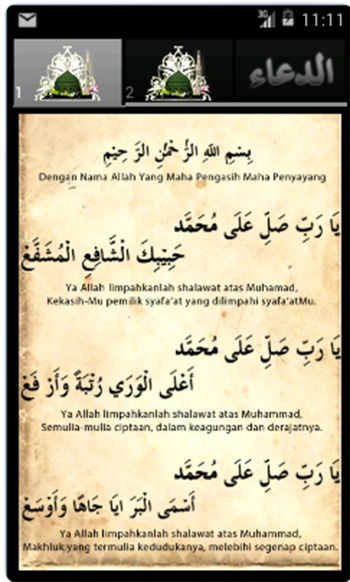 3G 11:11
1
2
الدعاء
بِسْمِ اللَّهِ الرَّحْمٰنِ الرَّحِيْمِ
Dengan Nama Allah Yang Maha Pengasih Maha Penyayang
يَا رَبِّ صَلِّ عَلَى مُحَمَّد
حَبِيْبِكَ الْشَّافِعِ الْمُشَفَّعْ
Ya Allah limpahkanlah shalawat atas Muhamad,
Kekasih-Mu pemilik syafa'at yang dilimpahi syafa'atMu.
يَا رَبِّ صَلِّ عَلَى مُحَمَّد
أَعْلَى الْوَرَي رُتْبَةً وَأَرْ فَعْ
Ya Allah limpahkanlah shalawat atas Muhammad,
Semulia-mulia ciptaan, dalam keagungan dan derajatnya.
يَا رَبِّ صَلِّ عَلَى مُحَمَّد
أَسْمَى الْبَرَ ايَا جَاهًا وَأَوْسَعْ
Ya Allah limpahkanlah shalawat atas Muhammad,
Makhluk yang termulia kedudukanya, melebihi segenap ciptaan.